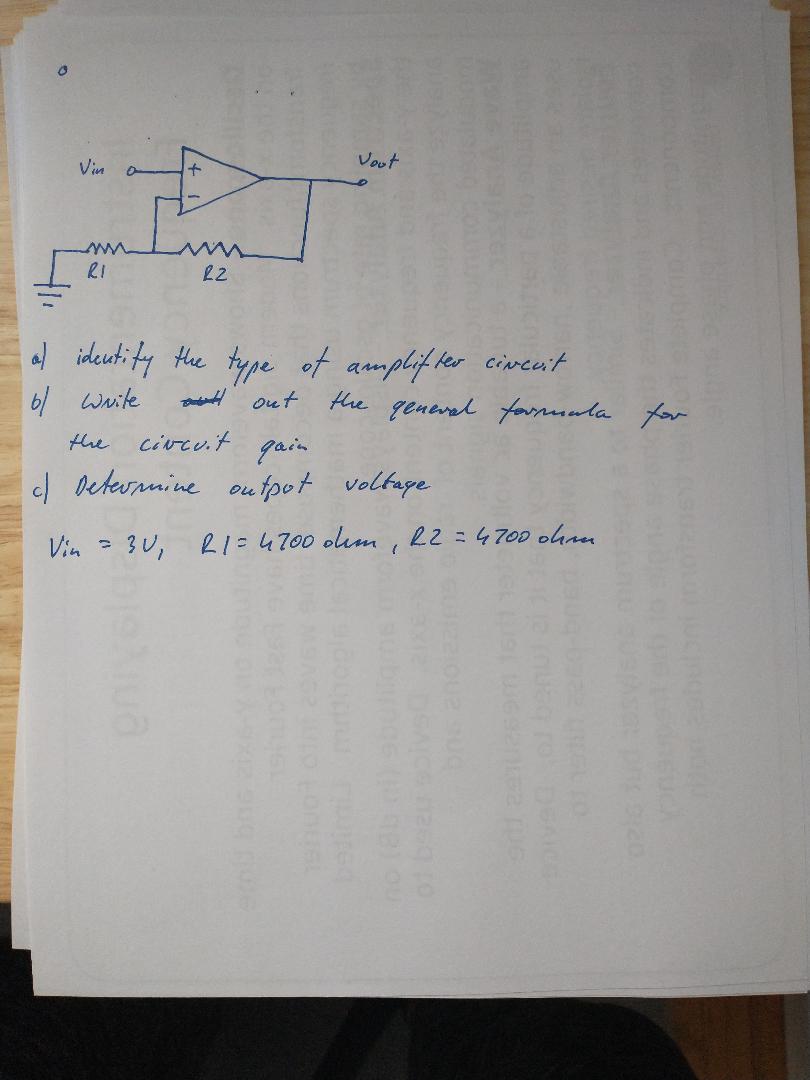 Vin
+
-
Vout
R1
R2
a) identify the type of amplifier circuit
b) Write out the general formula for
the circuit gain
c) Determine output voltage
Vin = 3V, R1 = 4700 ohm, R2 = 4700 ohm